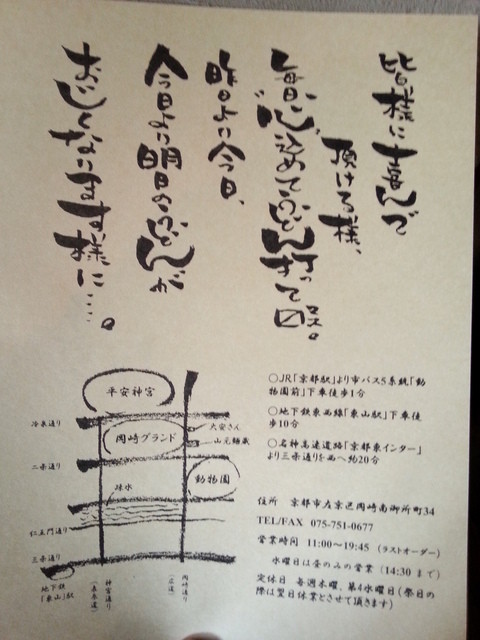 皆様に喜んで
頂ける様、
毎日"心"込めてうどん打って〼。
昨日より今日、
今日より明日のうどんが
おいしくなります様に……。
平安神宮
冷泉通り
岡崎グランド
大安さん
山元麺蔵
二条通り
動物園
疎水
仁王門通り
三条通り
地下鉄
「東山」駅
神宮通り
(表参道)
岡崎通り
○JR「京都駅」より市バス5系統「動
物園前」下車徒歩1分
○地下鉄東西線「東山駅」下車徒
歩10分
○名神高速道路「京都東インター」
より三条通りを西へ約20分
住所 京都市左京区岡崎南御所町34
TEL/FAX 075-751-0677
営業時間 11:00〜19:45 (ラストオーダー)
水曜日は昼のみの営業 (14:30 まで)
定休日 毎週木曜、第4水曜日(祭日の
際は翌日休業とさせて頂きます)